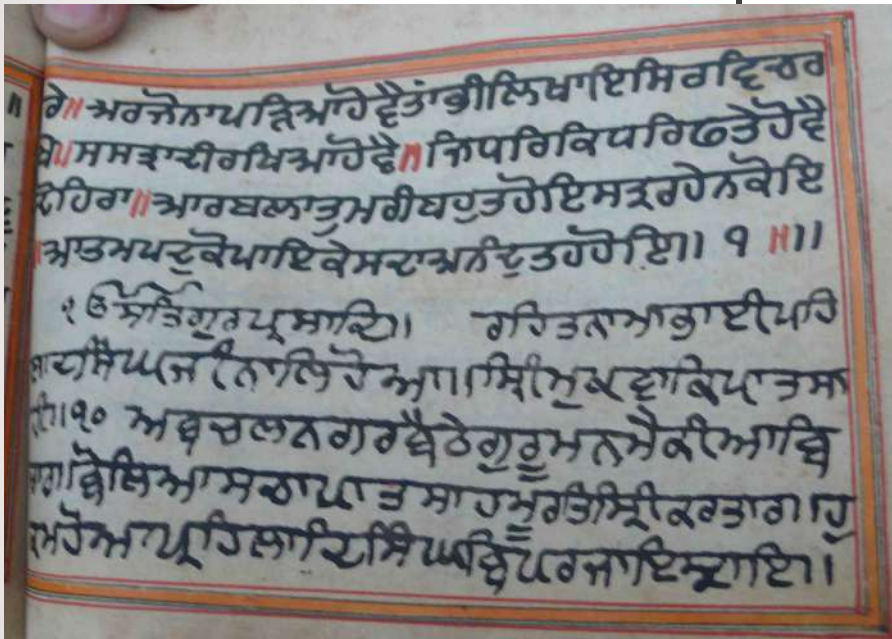 ਰੇ॥ਅਰਜੋਨਾਪਲਿਆਹੋਵੈਤਾਂਭੀਲਿਖਾਇਸਿਰਵਿਚਰ
ਖੇ॥ਸਸਤ੍ਰਾਦੀਰਖਿਆਹੋਵੈ॥ਜਿਪਰਿਕਿਪਰਿਫਤੇਹੋਵੈ
ਦੋਹਿਰਾ॥ਆਰਬਲਾਤੁਮਰੀਬਹੁਤਹੋਇਸਤ੍ਰਰਹੇਨਕੋਇ
॥ਆਤਮਪਦੁਕੋਪਾਇਕੇਸਦਾਅਨੰਦੁਤਹੋਹੋਇ॥੧॥॥
ੴਸਤਿਗੁਰਪ੍ਰਸਾਦਿ॥ ਰਹਿਤਨਾਮਾਭਾਈਪਹਿ
ਲਾਦਸਿੰਘਜੀਨਾਲਿਹੋਆ॥ਸ੍ਰੀਮੁਕਵਾਕਿਪਾਤਸਾ
ਹੀ॥੧੦ ਅਬਚਲਨਗਰਬੈਠੇਗੁਰੂਮਨਮੈਕੀਆਬਿ
ਚਾਰਾ॥ਬੋਲਿਆਸਚਾਪਾਤਸਾਹਮੂਰਤਿਸ੍ਰੀਕਰਤਾਰਾ॥ਹੁ
ਕਮਹੋਆਪ੍ਰਹਿਲਾਦਿਸਿੰਘਬਿਪਰਜਾਇਸੁਣਾਇ॥